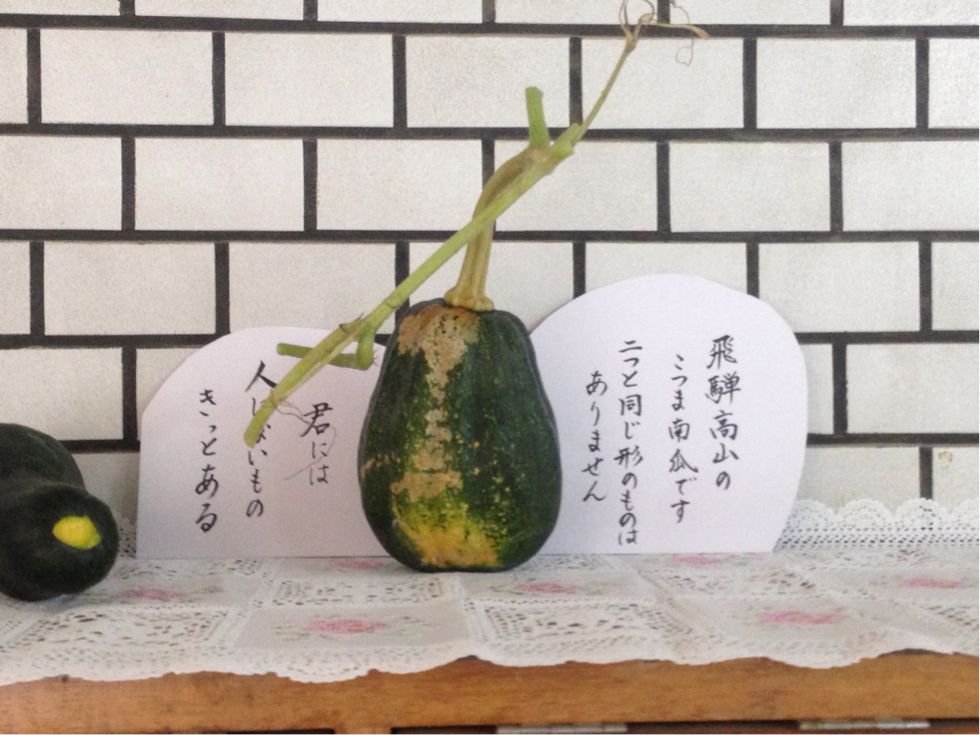 飛騨高山の
こつま南瓜です
二つと同じ形のものは
ありません
君には
人に いもの
きっとある